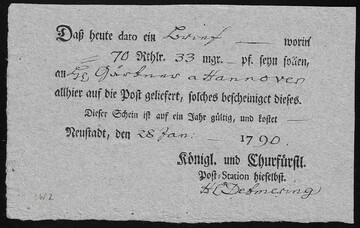 Daß heute dato ein Brief — worin
70 Rthlr. 33 mgr. — pf. seyn sollen,
an HE Gärtner a Hannover
allhier auf die Post geliefert, solches bescheiniget dieses.
Dieser Schein ist auf ein Jahr gültig, und kostet —
Neustadt, den 28 Jan: 1790.
Königl. und Churfürstl.
Post-Station hieselbst.
Detmering